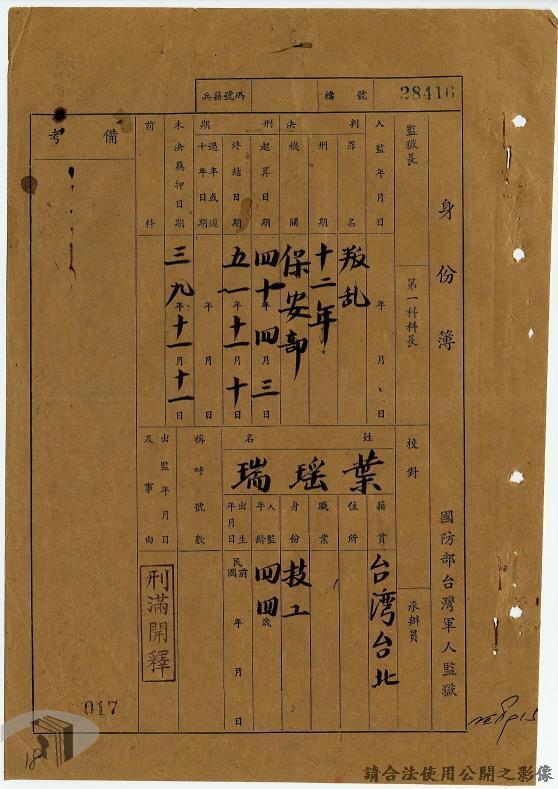 兵籍號碼
檔號 28416
身份簿
國防部台灣軍人監獄
監獄長
第一科科長
校對
承辦員
入監年月日 年 月 日
判決 罪名 叛乱
刑期 十二年
機關 保安部
刑期 起算日期 四十年四月三日
終結日期 五一年十一月十日
過半或逾十年日期 年 月 日
未決羈押日期 三九年十一月十一日
前科
備考
姓名 葉瑶瑞
籍貫 台湾台北
住所
職業
身份 技工
入監年齡 四四歲
出生年月日 民前國 年 月 日
稱呼號數
出監年月日及事由 刑滿開釋
017
18
請合法使用公開之影像